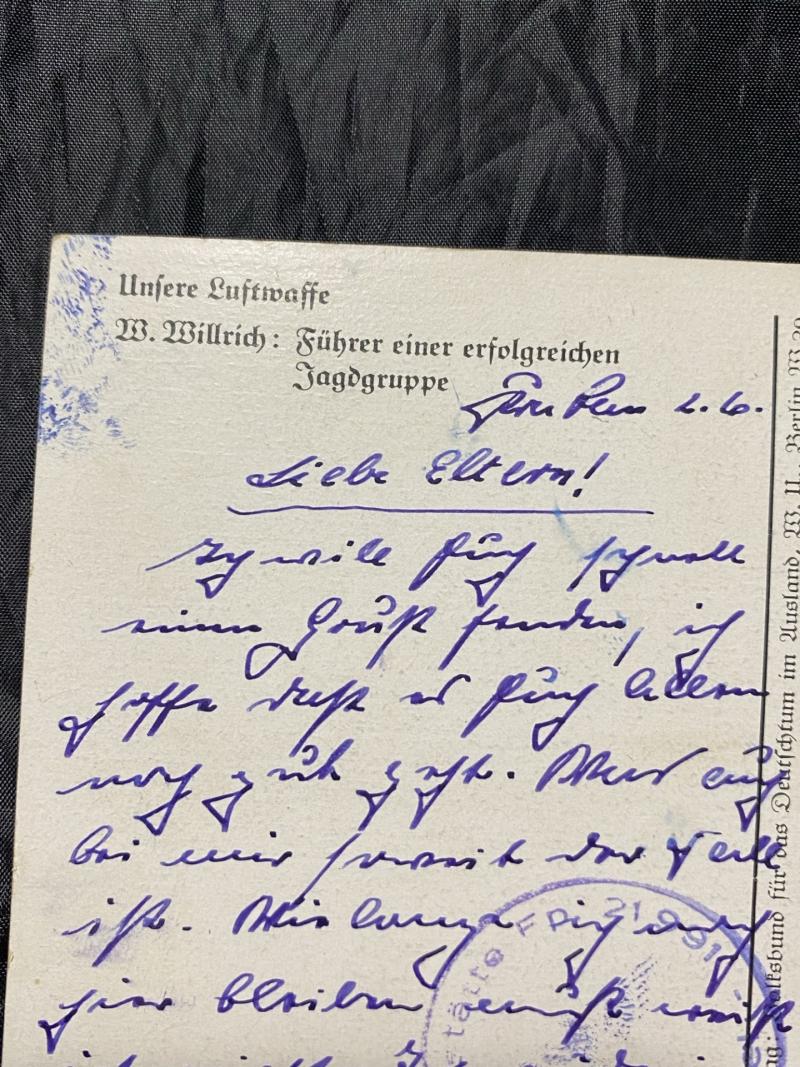 Unsere Luftwaffe
W. Willrich: Führer einer erfolgreichen
Jagdgruppe
2.6.
Liebe Eltern!
Ich will Euch schnell
einen Gruß senden, ich
hoffe daß es Euch allen
noch gut geht. Was auch
bei mir soweit der Fall
ist. Wie lange ich noch
hier bleiben muß weiß
ich nicht
Volksbund für das Deutschtum im Ausland, W. U., Berlin W 30